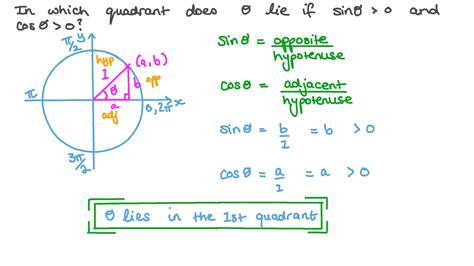 In which quadrant does θ lie if sinθ > 0 and
cosθ > 0?
π/2 y
hyp (a, b)
1
θ b opp
π a 0, 2π x
adj
3π/2
sinθ = opposite/hypotenuse
cosθ = adjacent/hypotenuse
sinθ = b/1 = b > 0
cosθ = a/1 = a > 0
θ lies in the 1st quadrant